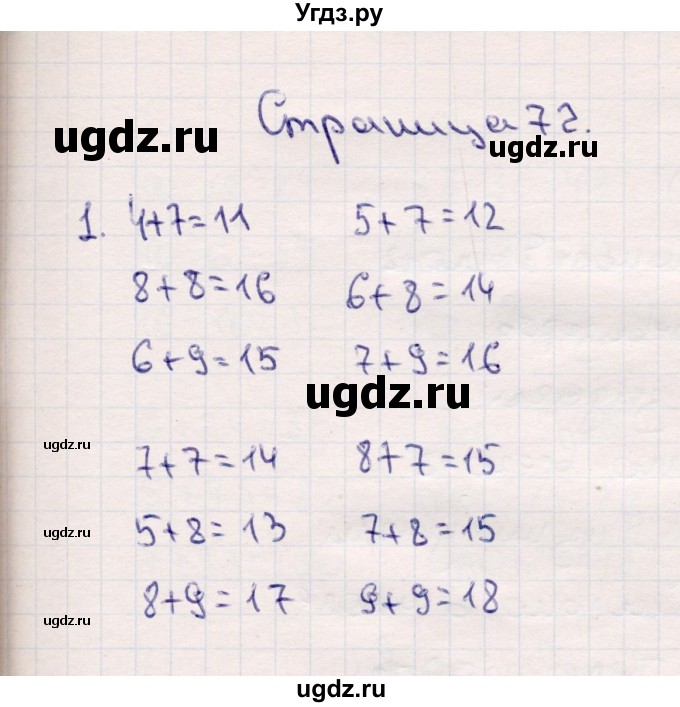 Угдз.ру
Страница 72.
ugdz.ru
ugdz.ru
1. 4+7=11 5+7=12
8+8=16 6+8=14
6+9=15 7+9=16
ugdz.ru
ugdz.ru
7+7=14 8+7=15
ugdz.ru
5+8=13 7+8=15
8+9=17 9+9=18
ugdz.ru
ugdz.ru